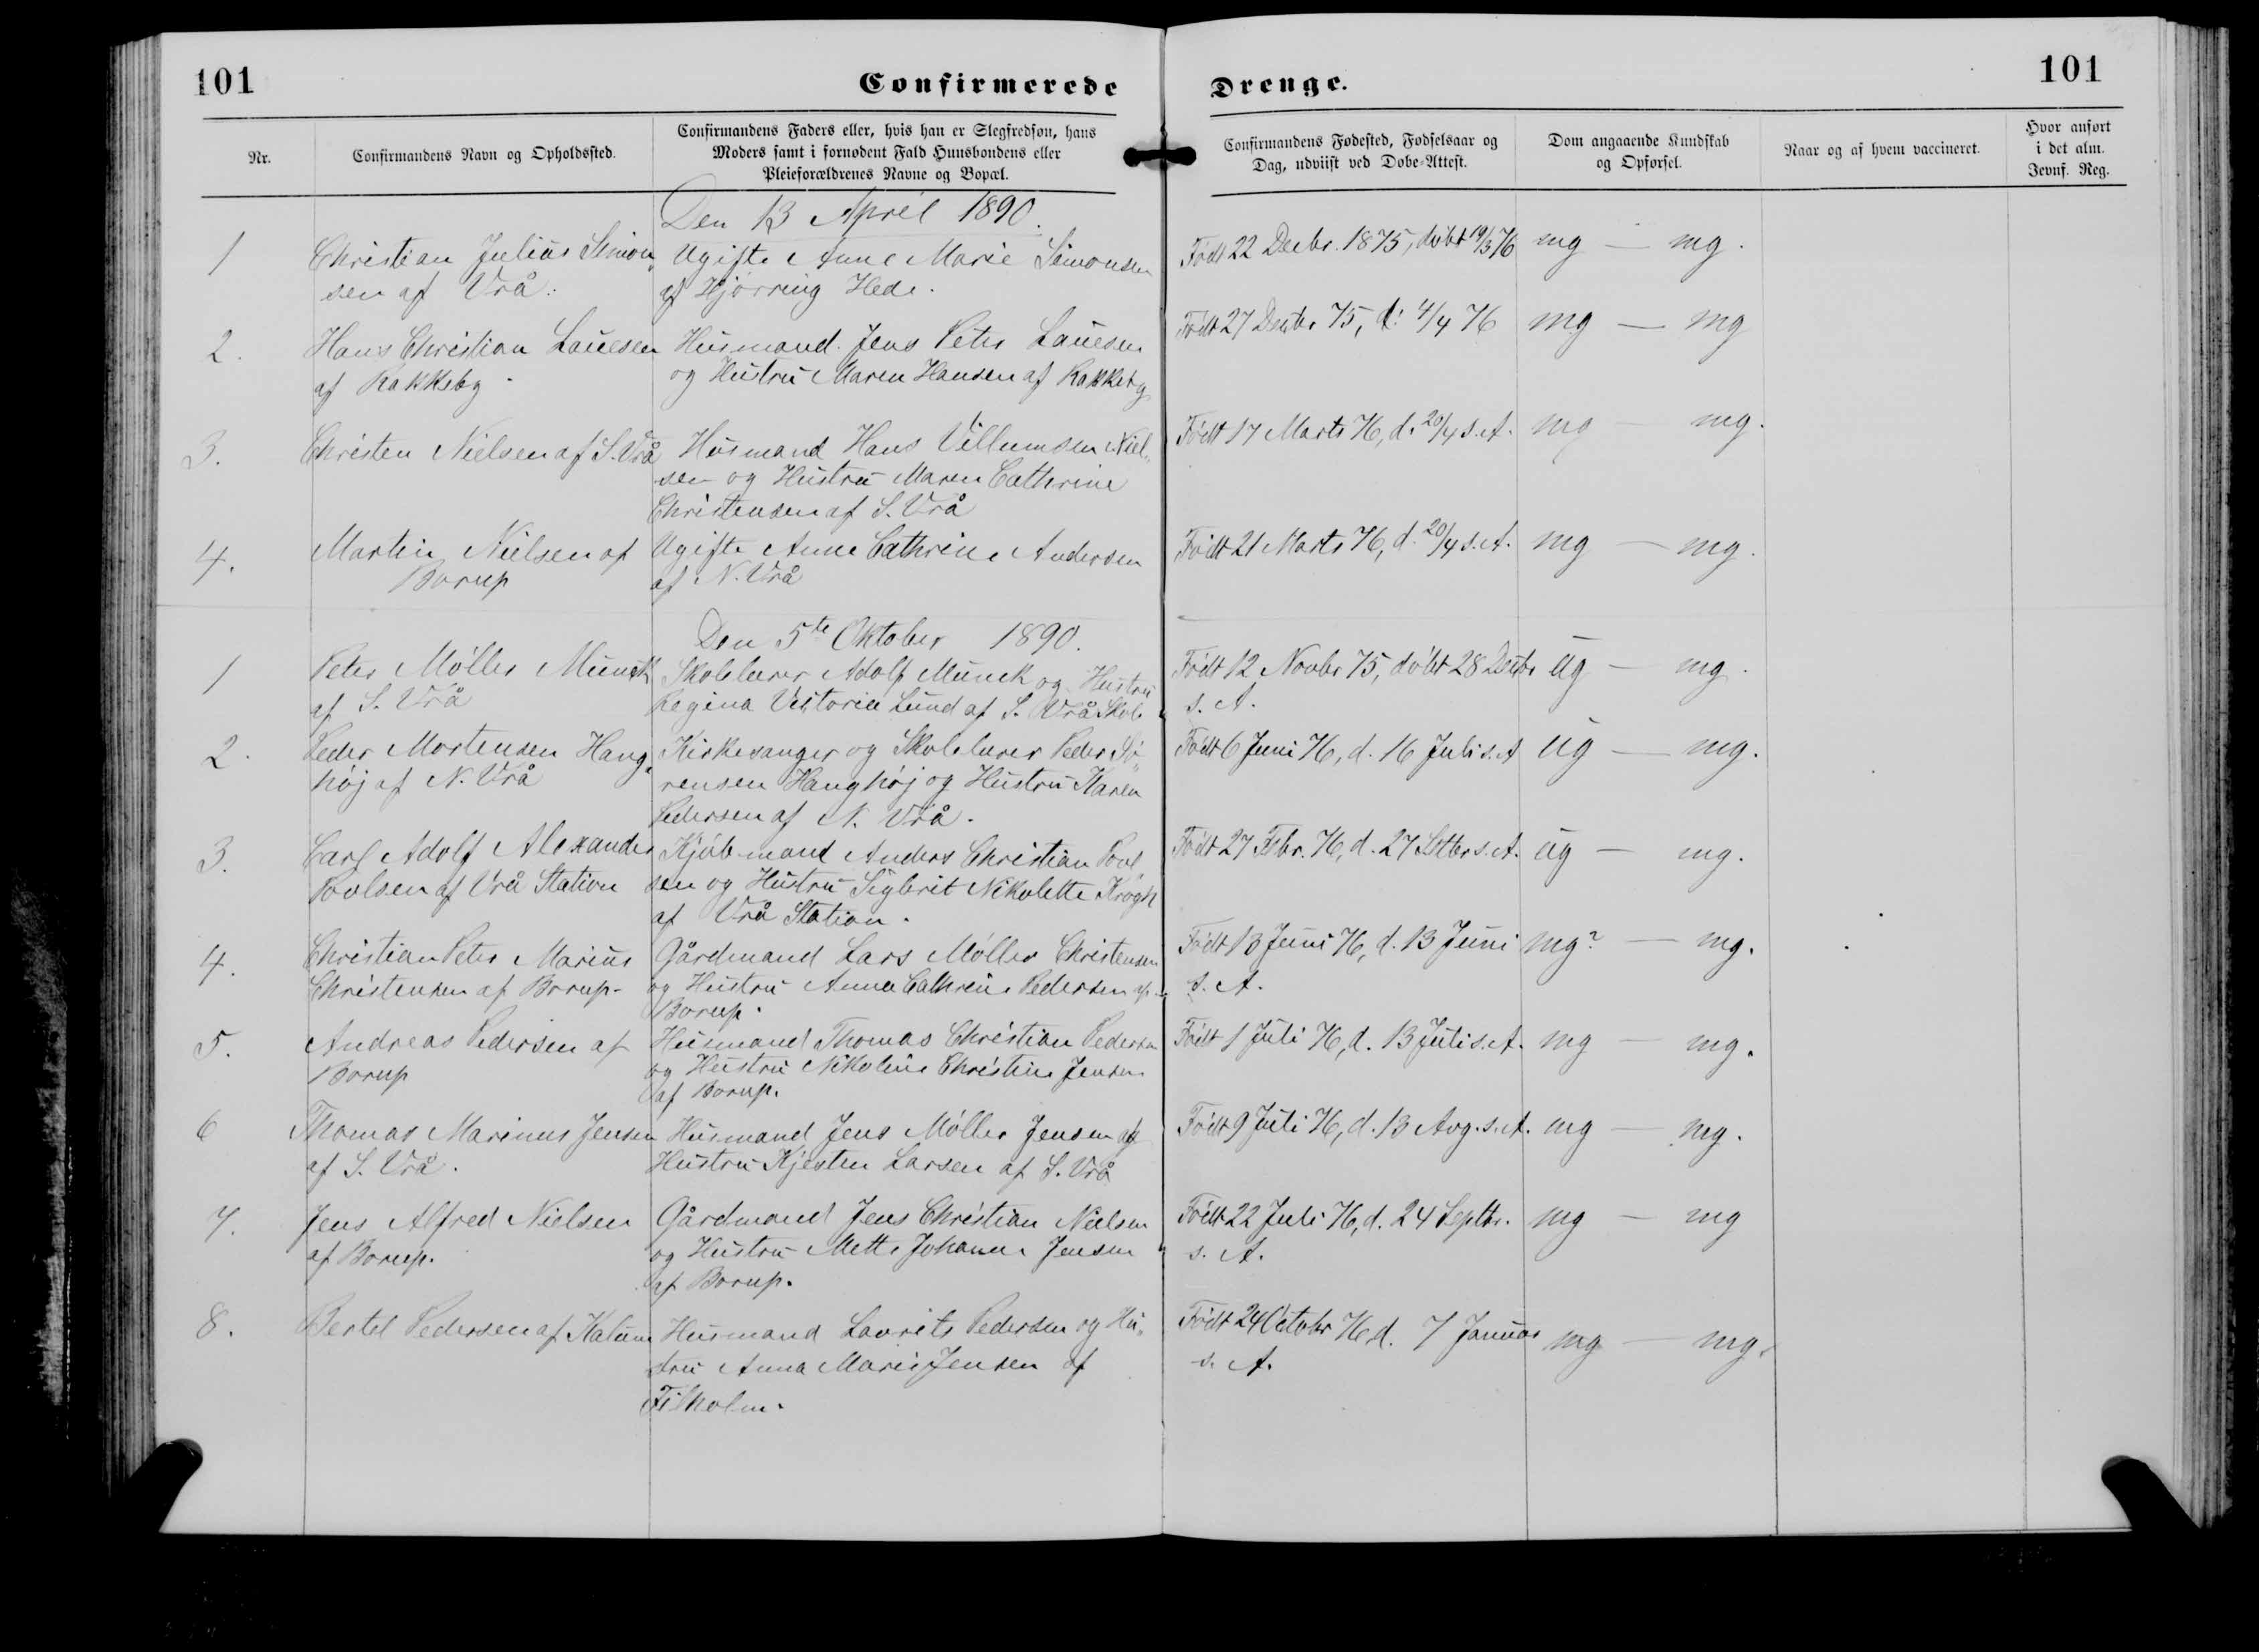 101
Confirmerede
Drenge.
101
Nr.
Confirmandens Navn og Opholdssted.
Confirmandens Faders eller, hvis han er Slegfredsøn, hans
Moders samt i fornødent Fald Huusbondens eller
Pleieforældrenes Navne og Bopæl.
Confirmandens Fødested, Fødselsaar og
Dag, udviist ved Døbe-Attest.
Dom angaaende Kundskab
og Opførsel.
Naar og af hvem vaccineret.
Hvor anført
i det alm.
Jevnf. Reg.
Den 13 April 1890.
1 Christian Julius Simon„ Ugifte Anne Marie Simonsen Født 22 Decbr. 1875, døbt 19/3 76 mg — mg.
sen af Vrå. af Hjørring Hede.
2. Hans Christian Lauesen Husmand Jens Peter Lauesen Født 27 Decbr 75, d. 4/4 76 mg — mg
af Rakkeby. og Hustru Maren Hansen af Rakkeby
3. Christen Nielsen af S. Vrå Husmand Hans Villumsen Niel„ Født 17 Marts 76, d. 20/4 s. A. mg — mg.
sen og Hustru Maren Cathrine
Christensen af S. Vrå
4. Martin Nielsen af Ugifte Anne Cathrine Andersen Født 21 Marts 76, d. 20/4 s. A. mg — mg.
Borup af N. Vrå
Den 5te Oktober 1890.
1 Peter Møller Munck Skolelærer Adolf Munck og Hustru Født 12 Novbr 75, døbt 28 Decbr ug — mg.
af S. Vrå Regina Victoria Lund af S. Vrå Skole s. A.
2. Peder Mortensen Hang„ Kirkesanger og Skolelærer Peder Sø„ Født 6 Juni 76, d. 16 Juli s. A ug — mg.
høj af N. Vrå rensen Hanghøj og Hustru Karen
Pedersen af N. Vrå.
3. Carl Adolf Alexander Kjøbmand Anders Christian Poul„ Født 27 Febr. 76, d. 27 s. A. ug — mg.
Poulsen af Vrå Station sen og Hustru Sigbrit Nikolette Krogh
af Vrå Station.
4. Christian Peter Marius Gårdmand Lars Møller Christensen Født 13 Juni 76, d. 13 Juni mg? — mg.
Christensen af Borup. og Hustru Anna Cathrine Pedersen af s. A.
Borup.
5. Andreas Pedersen af Husmand Thomas Christian Pedersen Født 1 Juli 76, d. 13 Juli s. A. mg — mg.
Borup og Hustru Nikoline Christine Jensen
af Borup.
6 Thomas Marinus Jensen Husmand Jens Møller Jensen og Født 9 Juli 76, d. 13 Aug. s. A. mg — mg.
af S. Vrå. Hustru Kjesten Larsen af S. Vrå
7. Jens Alfred Nielsen Gårdmand Jens Christian Nielsen Født 22 Juli 76, d. 24 Septbr. mg — mg
af Borup. og Hustru Mette Johanne Jensen s. A.
af Borup.
8. Bertel Pedersen af Katum Husmand Laurits Pedersen og Hu„ Født 24 Octobr 76, d. 7 Januar mg — mg.
stru Anna Marie Jensen af s. A.
Filholm.